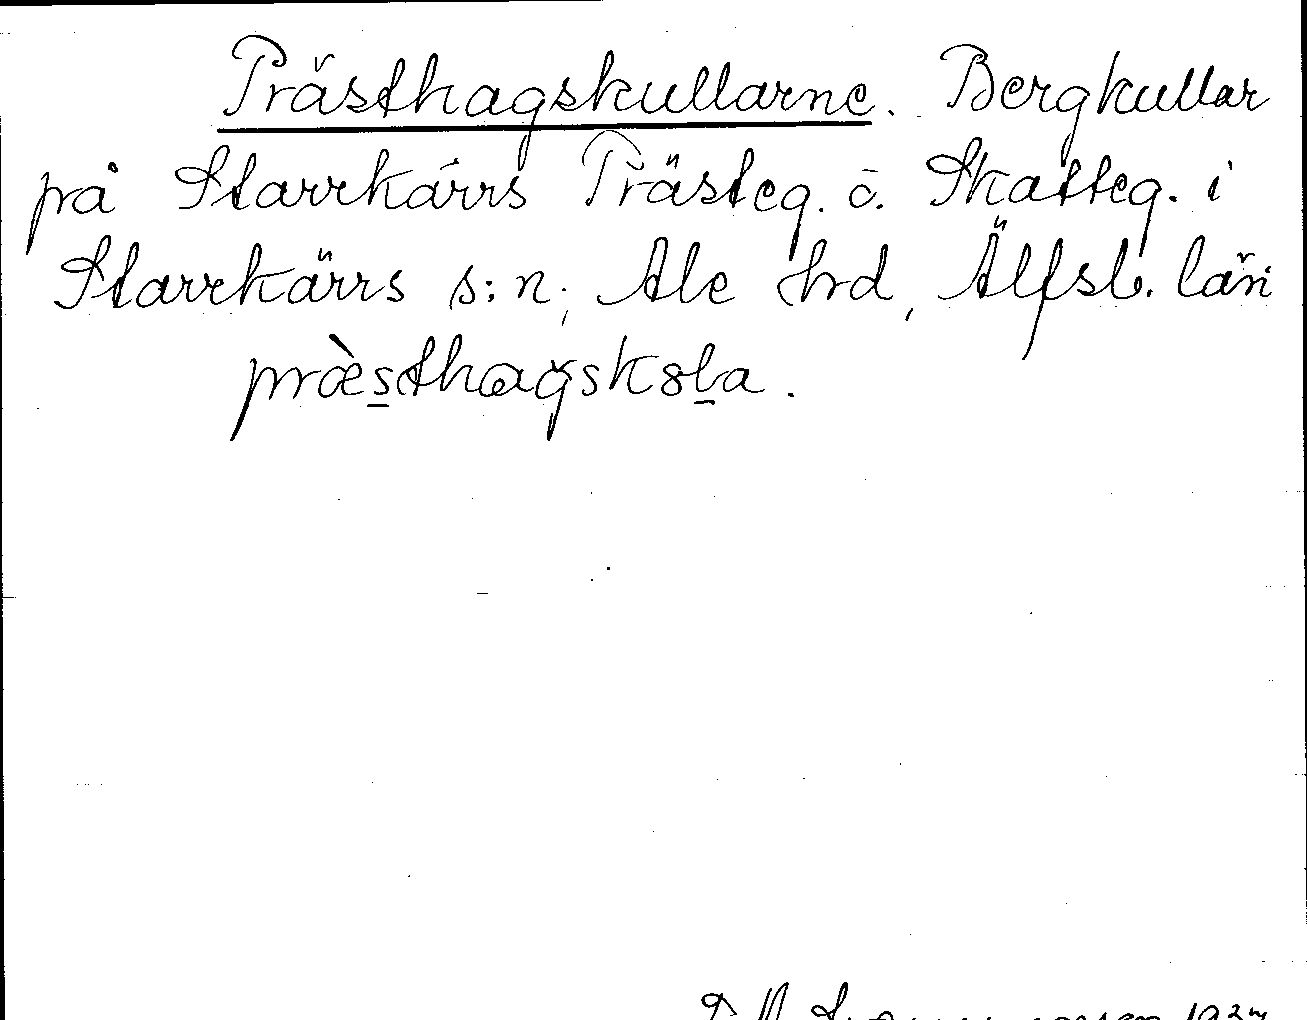 Prästhagskullarne. Bergkullar
på Starrkärrs Prästeg. o. Skatteg. i
Starrkärrs s:n, Ale hrd, Älfsb. län
præsthagskola.